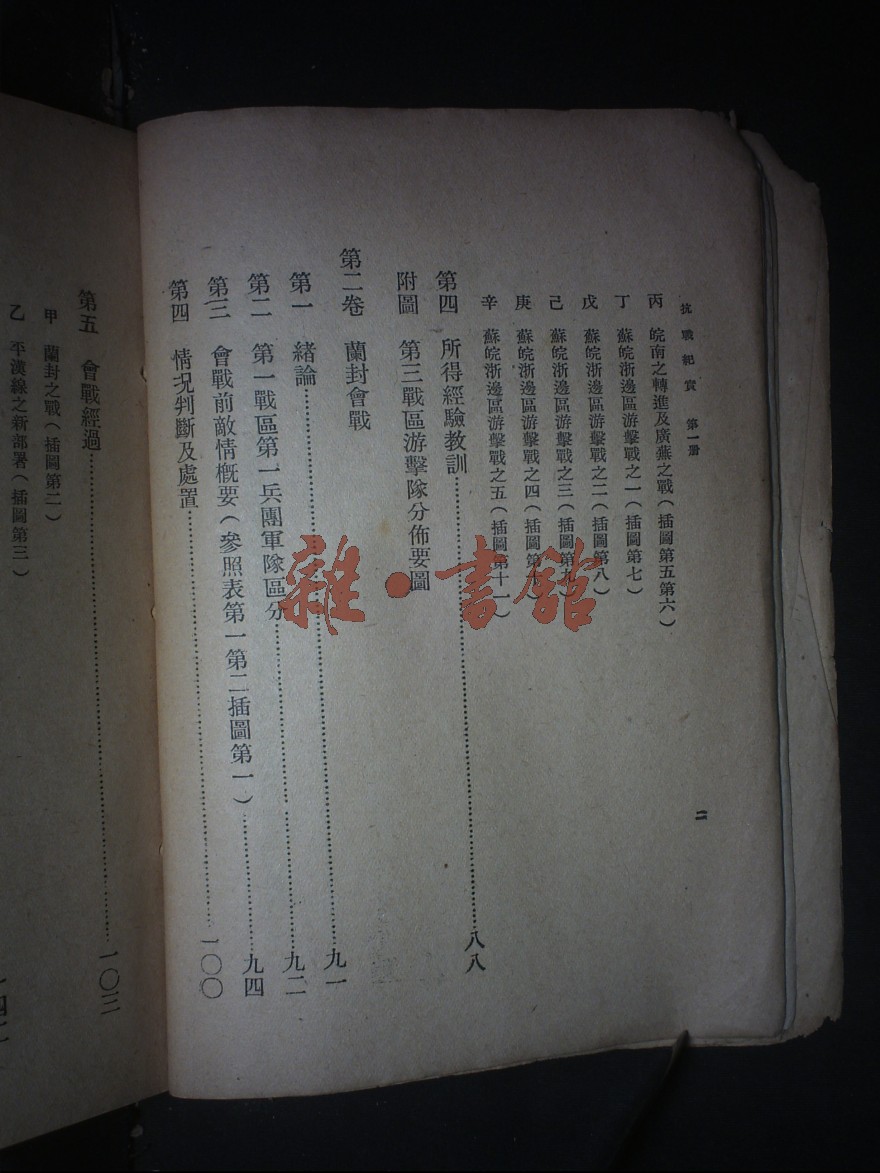 抗戰紀實 第一册
丙 皖南之轉進及廣蕪之戰(插圖第五第六)
丁 蘇皖浙邊區游擊戰之一(插圖第七)
戊 蘇皖浙邊區游擊戰之二(插圖第八)
己 蘇皖浙邊區游擊戰之三(插圖第九)
庚 蘇皖浙邊區游擊戰之四(插圖第十)
辛 蘇皖浙邊區游擊戰之五(插圖第十一)
第四 所得經驗教訓……八八
附圖 第三戰區游擊隊分佈要圖
第二卷 蘭封會戰
第一 緒論……九一
第二 第一戰區第一兵團軍隊區分……九二
第三 會戰前敵情概要(參照表第一第二插圖第一)……九四
第四 情況判斷及處置……一〇〇
二
第五 會戰經過……一〇三
甲 蘭封之戰(插圖第二)
乙 平漢線之新部署(插圖第三)
雜·書館